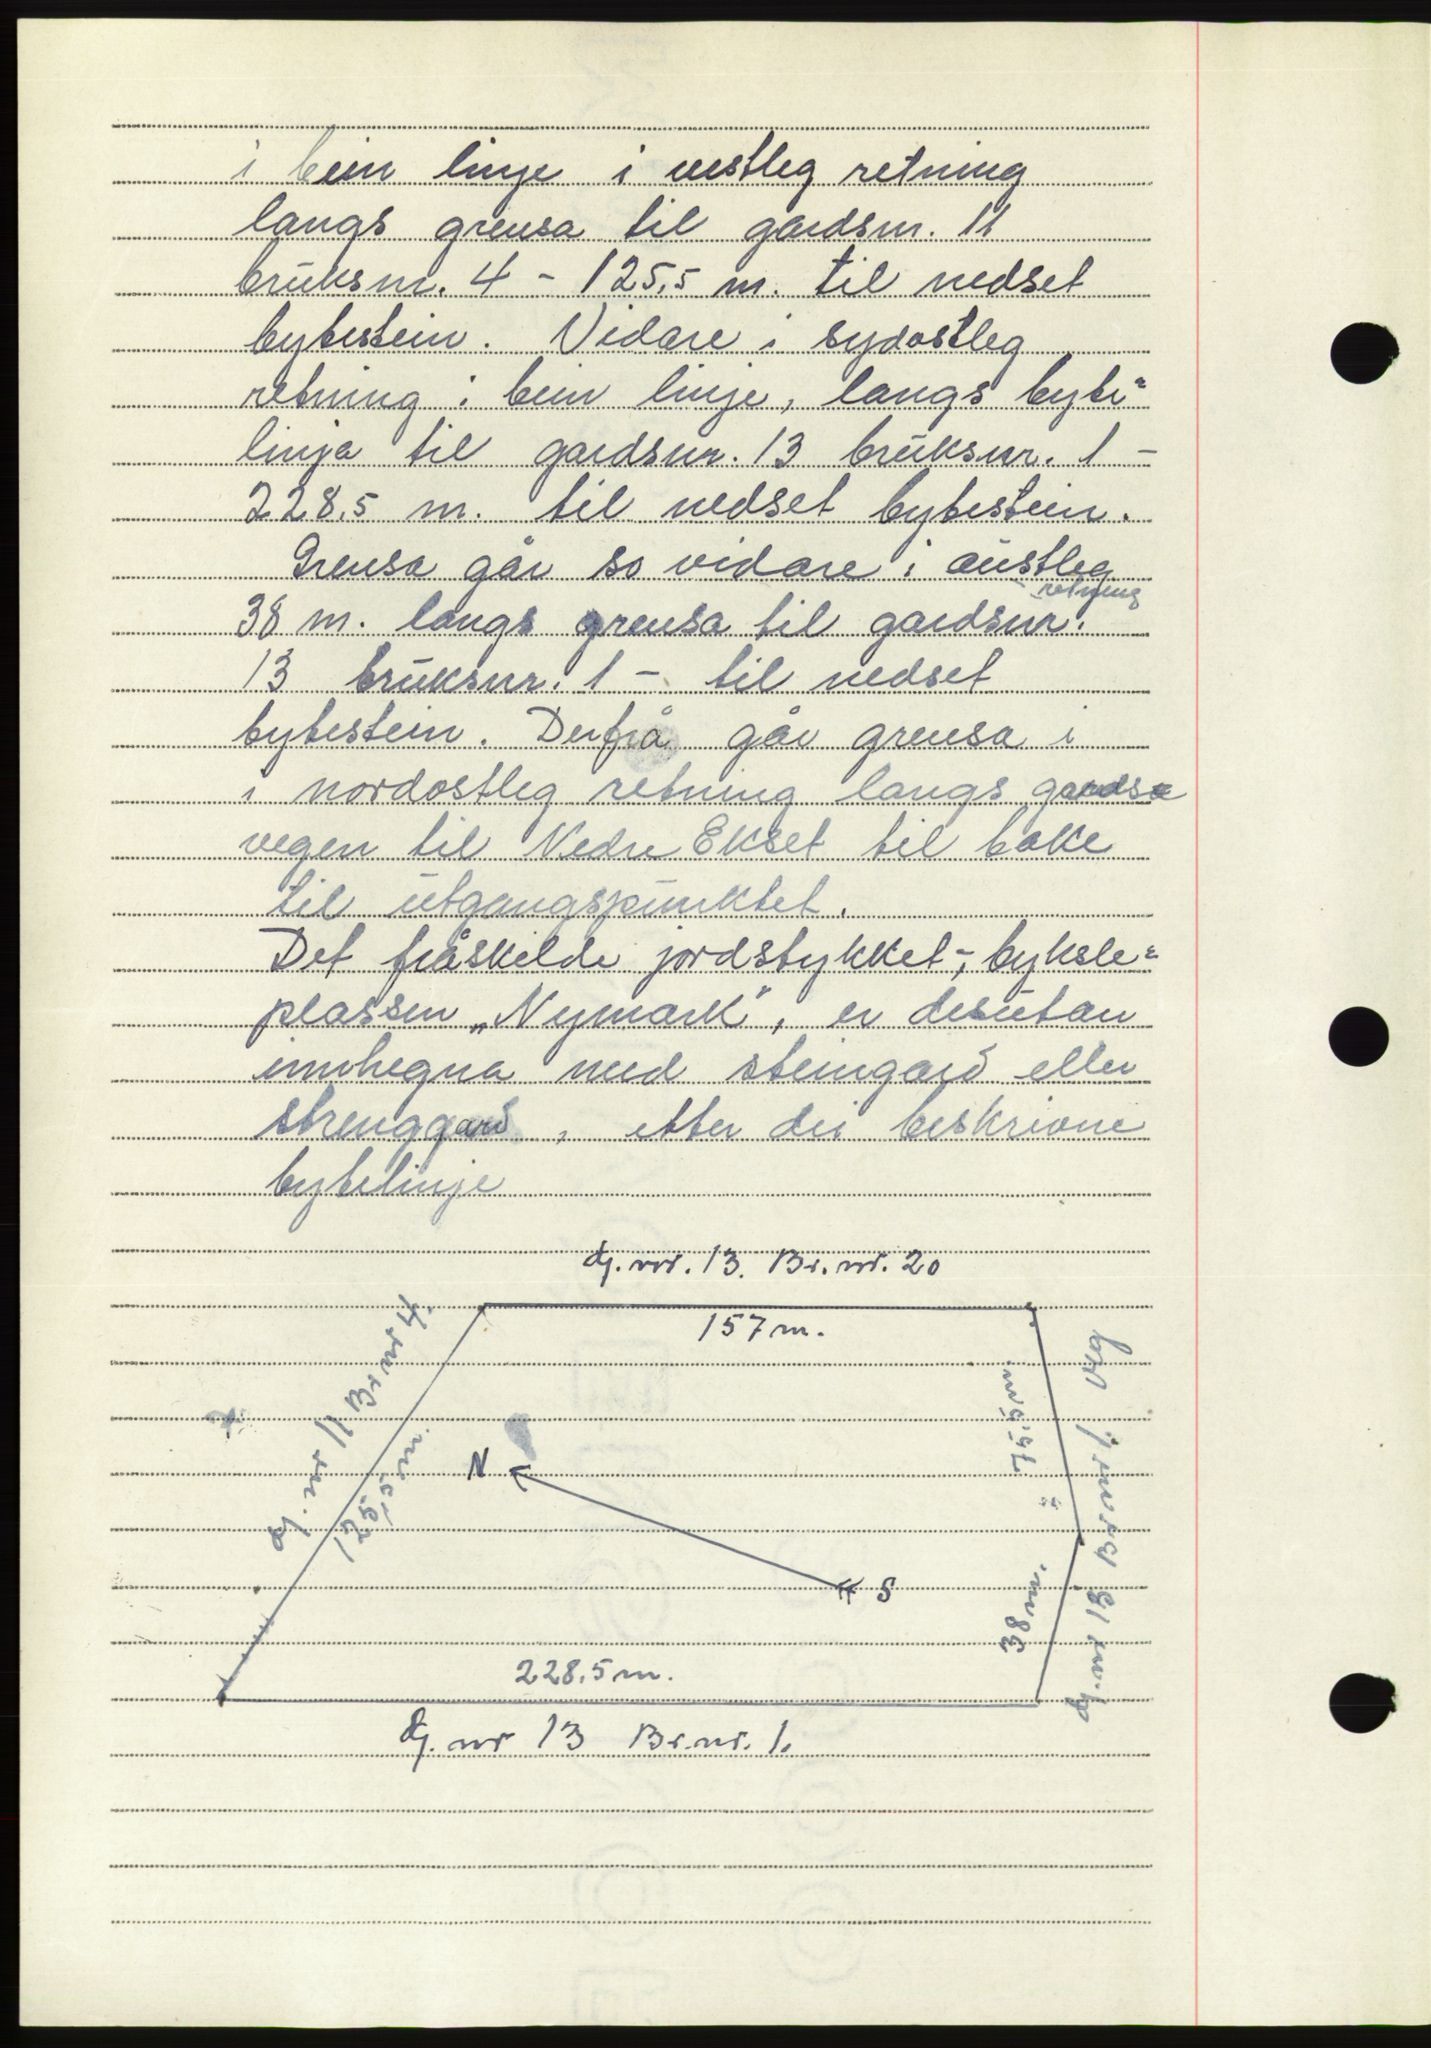 i bein linje i vestleg retning
langs grensa til gardsnr. 11
bruksnr. 4 - 125,5 m. til nedset
bytestein. Vidare i sydostleg
retning i bein linje, langs byte=
linja til gardsnr. 13 bruksnr. 1 -
228,5 m. til nedset bytestein.
Grensa går so vidare i austleg
retning
38 m. langs grensa til gardsnr.
13 bruksnr. 1 - til nedset
bytestein. Derfrå går grensa i
i nordostleg retning langs gards
vegen til Nedre Ekset til bake
til utgangspunktet.
Det fråskilde jordstykket -, byksle=
plassen „Nymark", er desutan
innhegna med steingard eller
strenggard, etter dei beskrivne
bytelinje
G. nr. 13. Br. nr. 20
157 m.
G. nr 11 Br nr 4.
125,5 m.
75,5 m
38 m.
G. nr 13 Br nr 1 veg
N
S
228,5 m.
G. nr 13 Br. nr. 1.